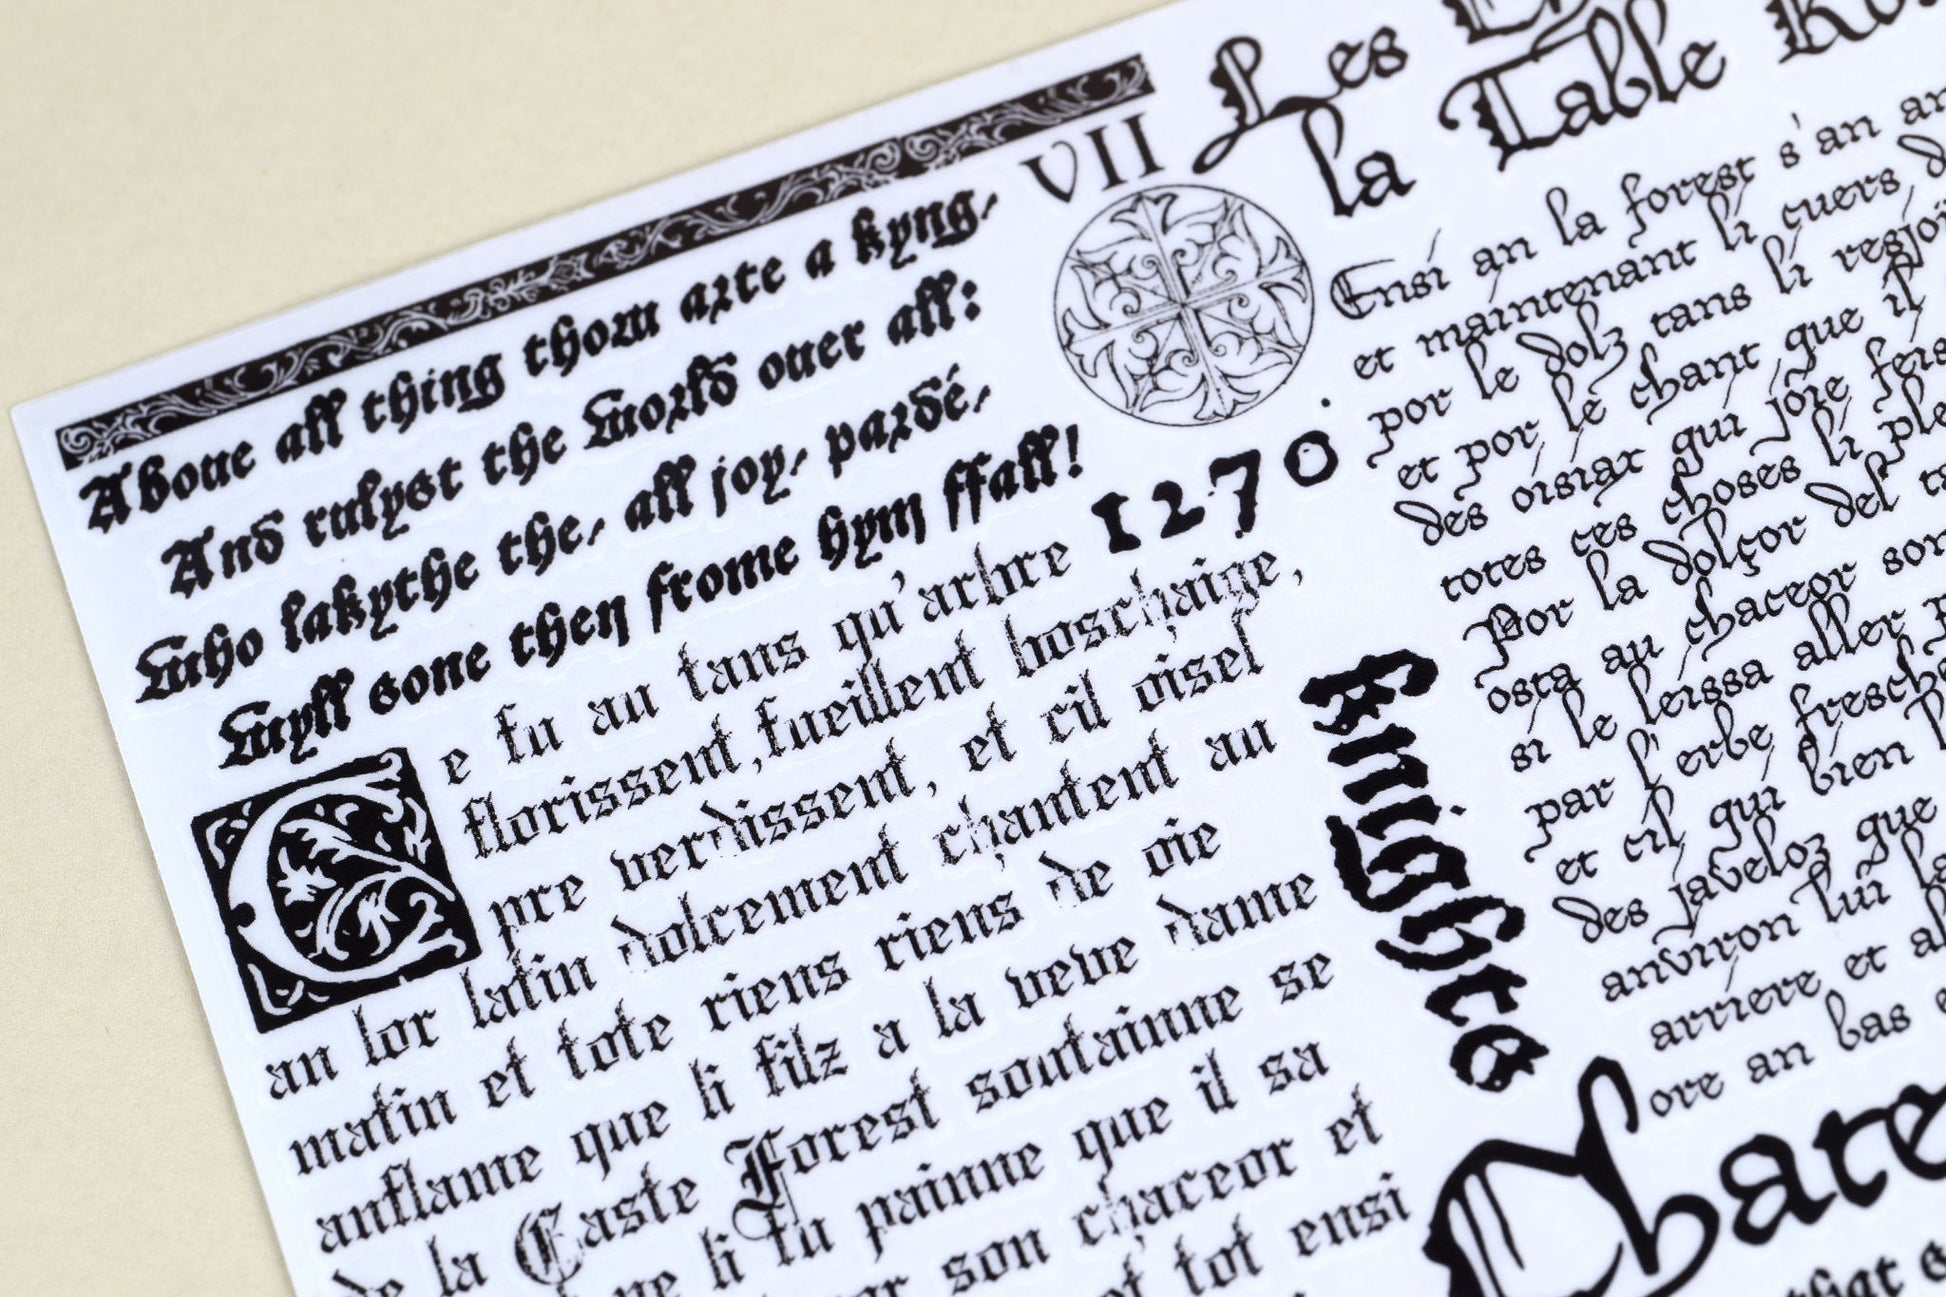 Aboue all thing thow arte a kyng,
And rulyst the world ouer all:
Who lakythe the, all joy, pardé,
Wyll sone then frome hym ffall!
VII
1270.
Ce fu au tans qu'arbre
florissent, fueillent boschaige,
pre verdissent, et cil oisel
an lor latin dolcement chantent au
matin et tote riens riens de oie
anflame que li filz a la veve dame
de la Gaste Forest soutainne se
li fu painne que il sa
son chaceor et
tot ensi
Les
la Table
Ensi an la forest s'an
et maintenant li cuers
por le dolz tans li
et por le chant que il
des oisiax qui joie
totes ces choses li
Por la dolçor del
osta au chaceor
si le leissa aller
par l'erbe
et cil qui bien
des javeloz que
anviron lui
arriere et
ore an bas
Knights
that